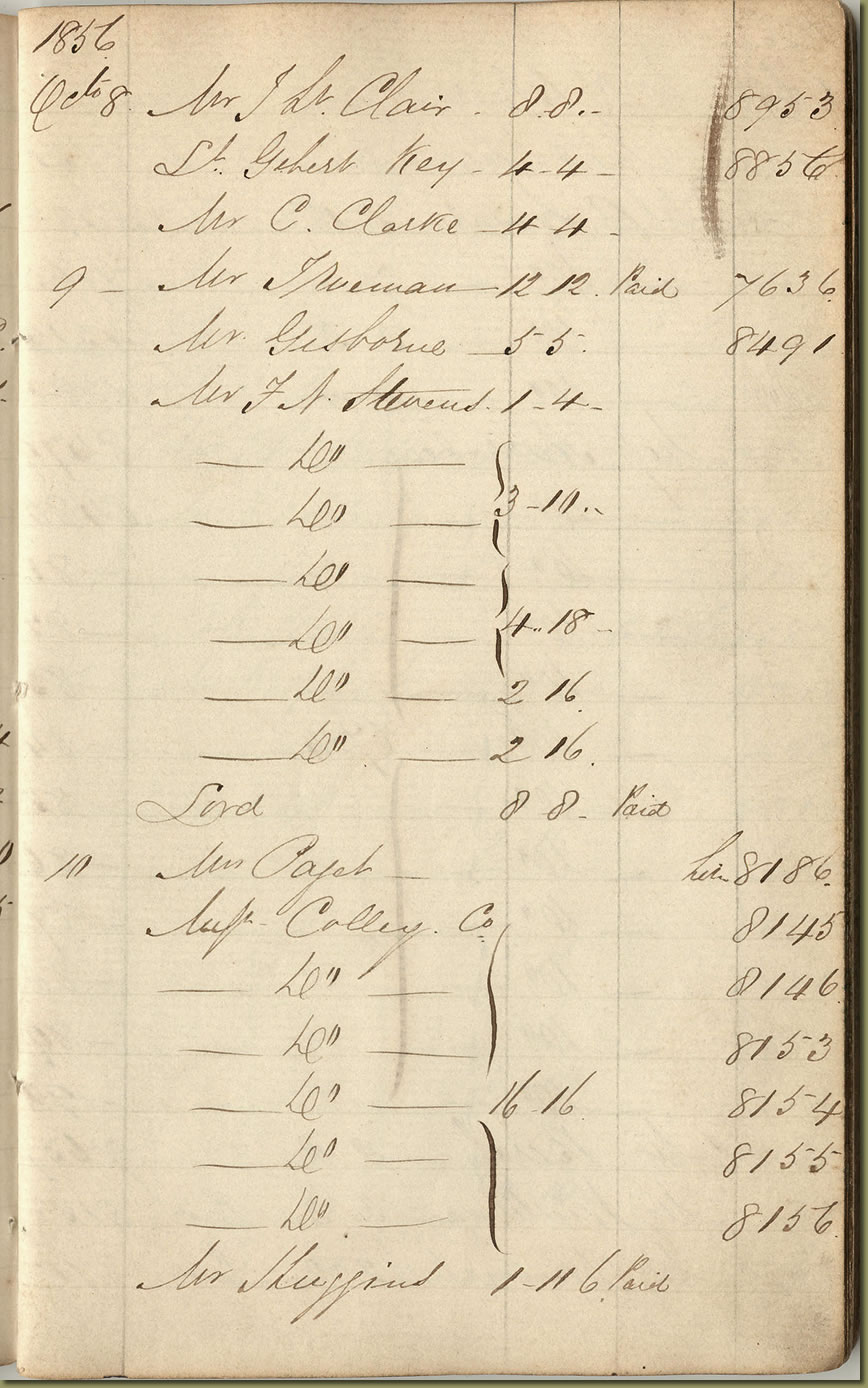 1856
Octo 8 Mr J St. Clair - 8.8.- 8953
St. Gilbert Key - 4-4- 8856
Mr C. Clarke - 4 4 -
9 - Mr Trueman - 12 12. Paid 7636.
Mr. Gisborne - 5 5. 8491
Mr F N. Stevens. 1-4-
— Do —
— Do — 3-10..
— Do —
— Do — 4..18-
— Do — 2 16.
— Do — 2 16.
Lord 8 8- Paid
10 Paget — 8186.
Colley. Co. 8145
— Do — 8146.
— Do — 8153
— Do — 16-16. 8154
— Do — 8155
— Do — 8156.
Mr Huggins 1-11 6. Paid